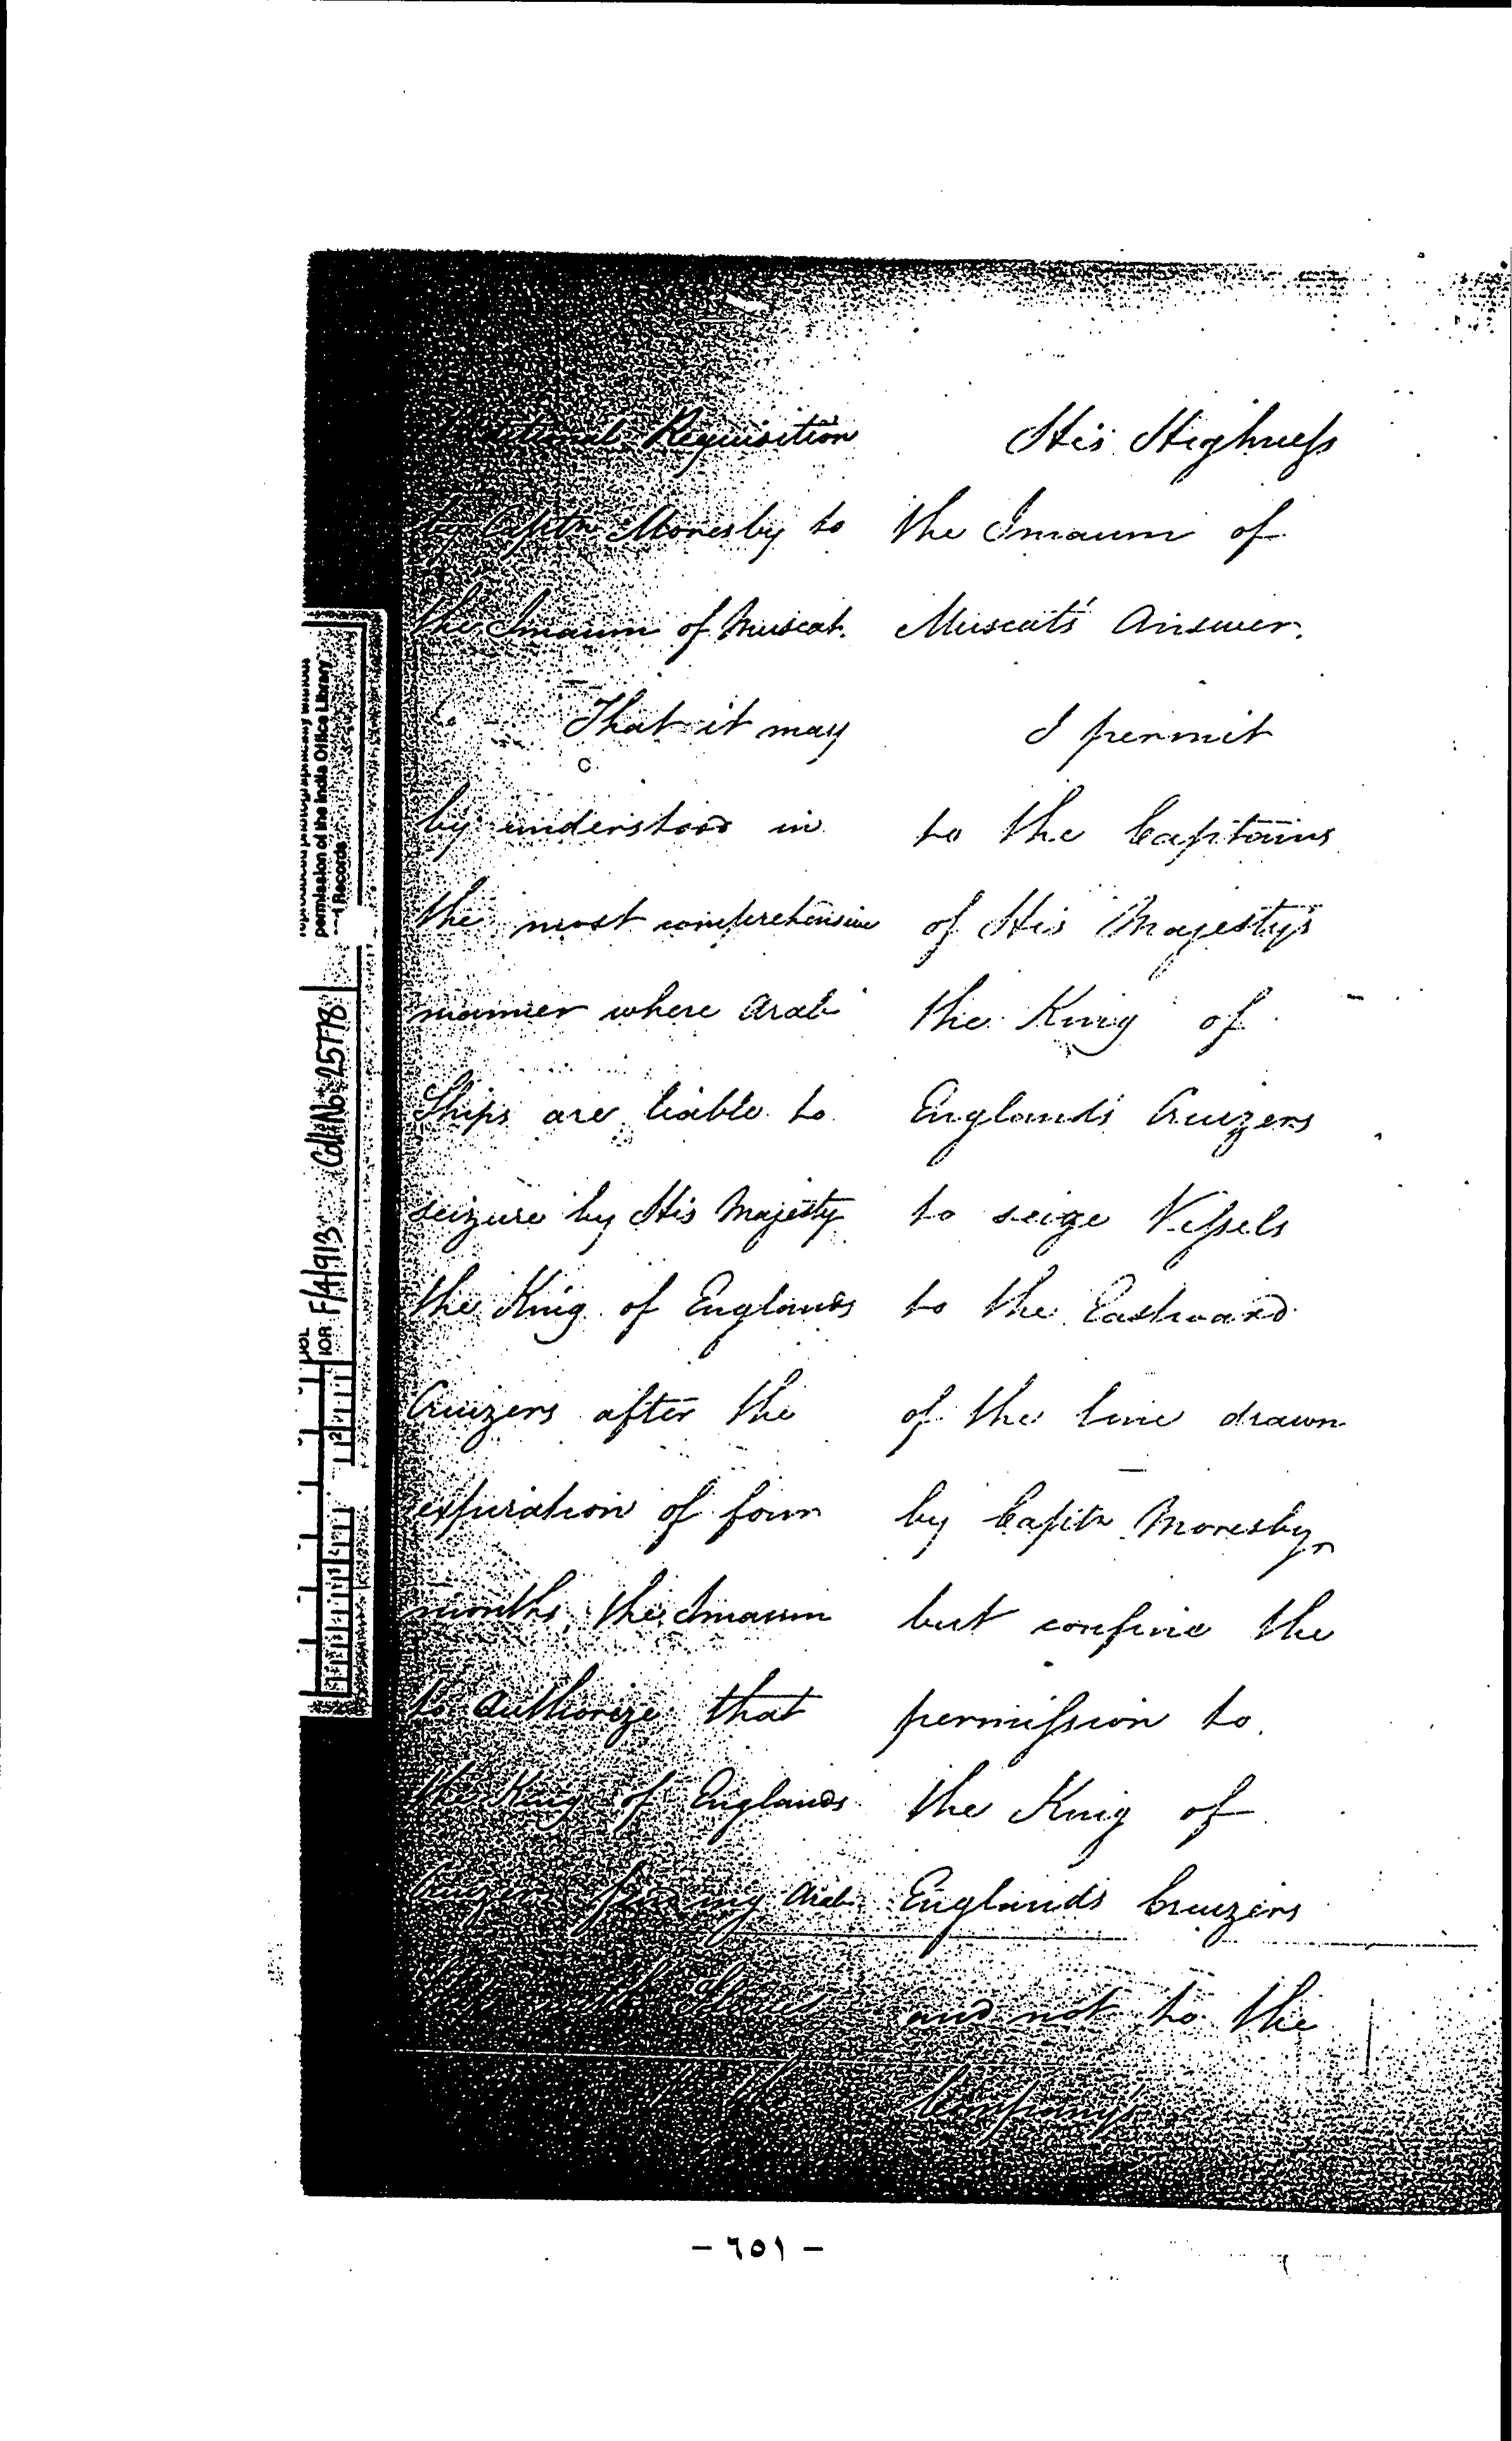 Requisition
by Captn Moresby to
the Imaum of Muscat.
That it may
by understood in
the most comprehensive
manner where Arab
Ships are liable to
seizure by His Majesty
the King of Englands
Cruizers after the
expiration of four
months, the Imaum
to authorize that
the King of Englands
Cruizers finding Arab
His Highness
the Imaum of
Muscat's Answer.
I permit
to the Captains
of His Majesty's
the King of
England's Cruizers
to seize Vessels
to the Eastward
of the line drawn
by Captn Moresby,
but confine the
permission to
the King of
England's Cruizers
and not to the
Company's
permission of the India Office Library
Records
IOR F/4/913 Coll No 25778
- ٦٥١ -